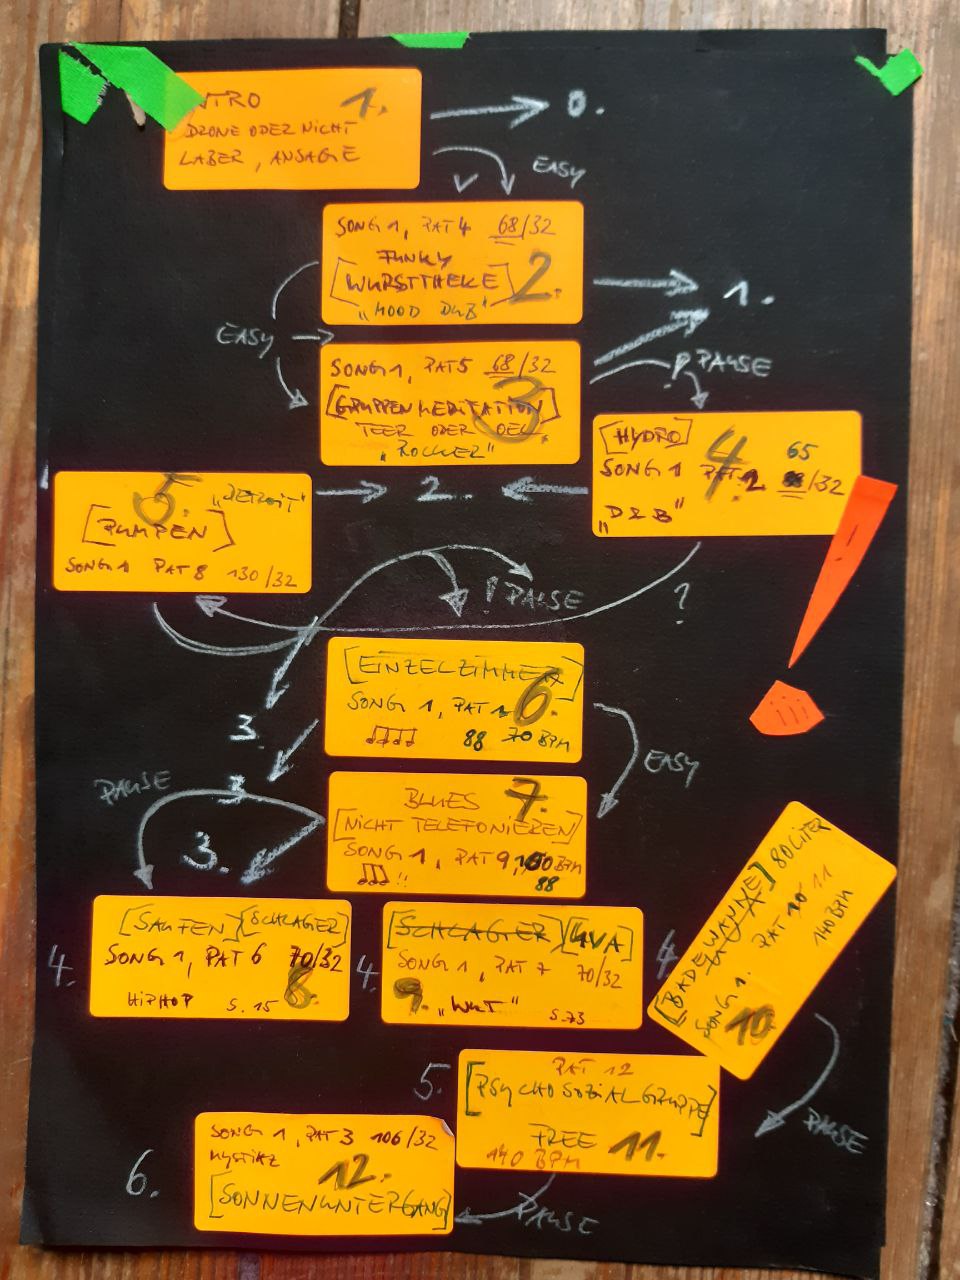 INTRO 1.
DRONE ODER NICHT
LABER, ANSAGE
0.
EASY
SONG 1, PAT 4 68/32
FUNKY
[WURSTTHEKE] 2.
"MOOD DUB"
1.
EASY
SONG 1, PAT 5 68/32
[GRUPPENMEDITATION] 3.
TEER ODER OEL
"ROCKER"
! PAUSE
[HYDRO] 4.
65
SONG 1 PAT 2 /32
"D&B"
5. "DETROIT"
[PUMPEN]
SONG 1 PAT 8 130/32
2.
! PAUSE
?
[EINZELZIMMER] 6.
SONG 1, PAT
88 70 BPM
3.
EASY
PAUSE
3
BLUES 7.
[NICHT TELEFONIEREN]
SONG 1, PAT 9, BPM
88
3.
4.
[SAUFEN] [SCHLAGER]
SONG 1, PAT 6 70/32
HIPHOP S. 15 8.
4.
[SCHLAGER] [UVA]
SONG 1, PAT 7 70/32
9. "WUT" S. 73
4.
[BADEWANNE] 80 LITER
SONG 1. PAT 10 11
10. 140 BPM
PAUSE
5.
PAT 12
[PSYCHOSOZIALGRUPPE]
FREE 11.
140 BPM
PAUSE
6.
SONG 1, PAT 3 106/32
12.
[SONNENUNTERGANG]